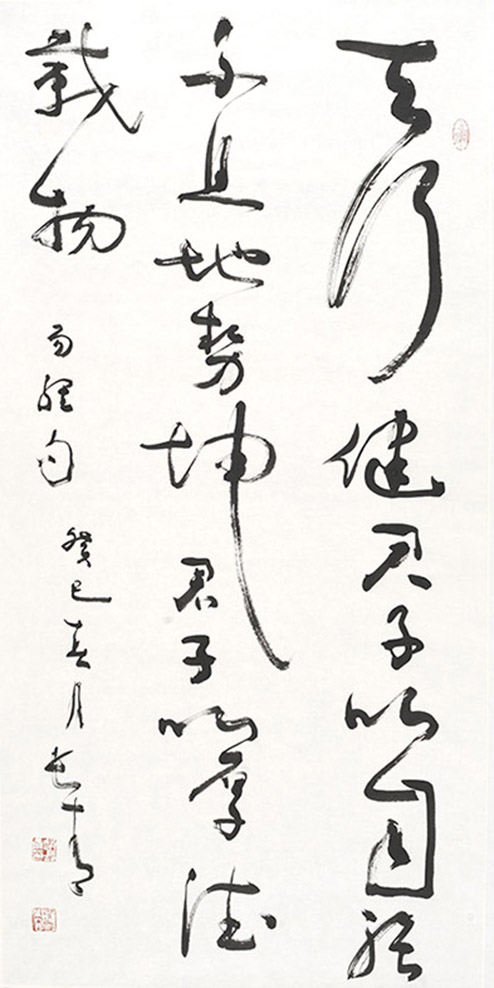 天行健君子以自強
不息地勢坤君子以厚德
載物
易經句
癸巳春月